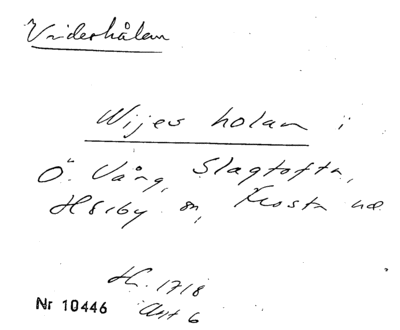 Viderhålan
Wijes holan i
Ö. Vång, Slagtofta,
Hörby sn, Frosta hd.
H. 1718
Akt 6
Nr 10446